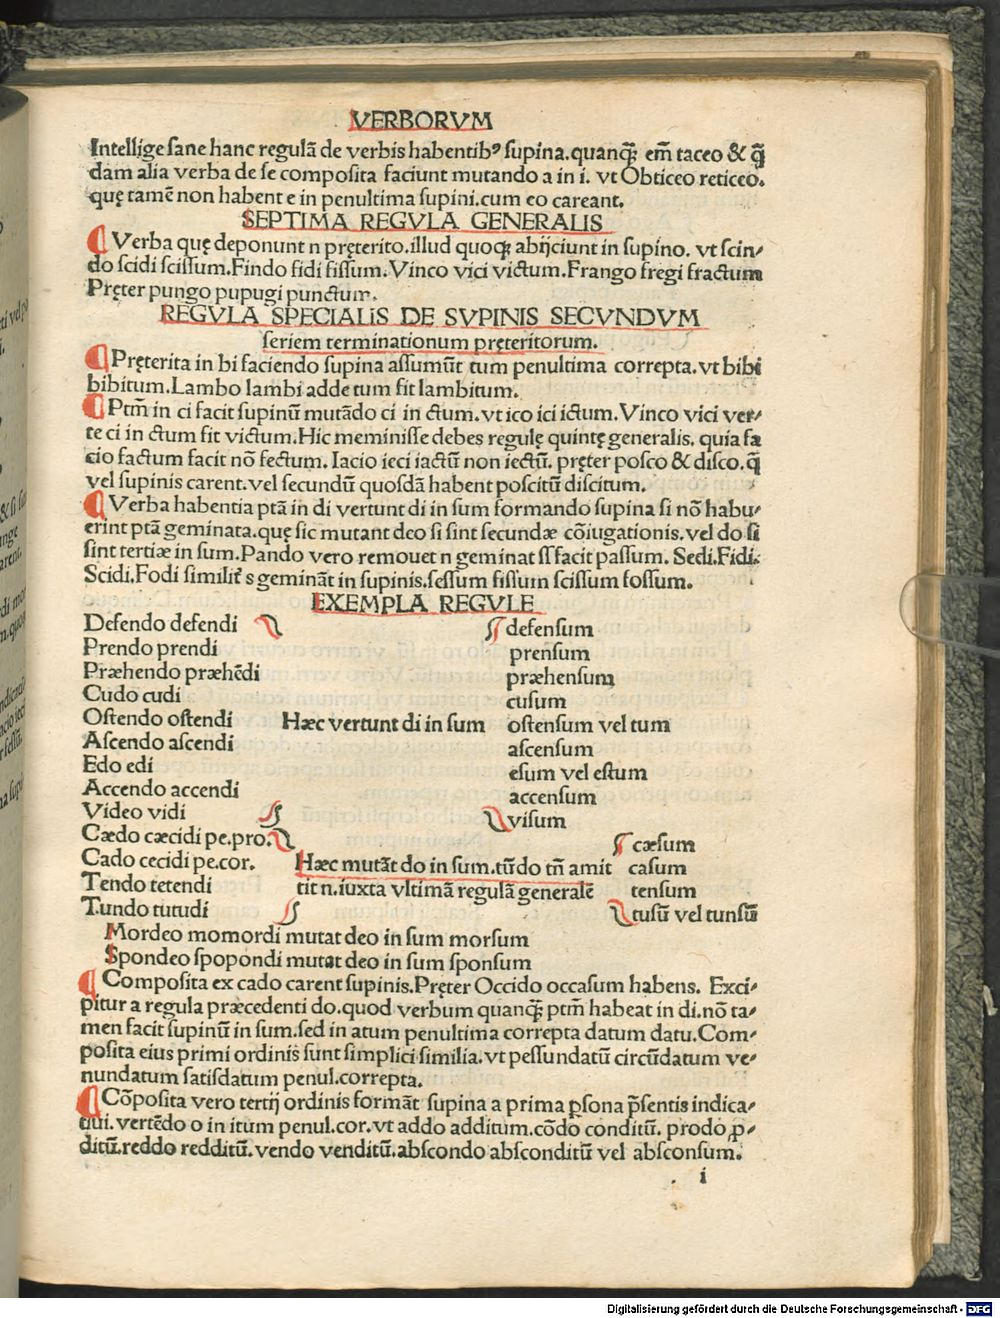 VERBORVM
Intellige sane hanc regulā de verbis habentibꝰ supina.quanꝗ̄ em̄ taceo & ꝗ̄
dam alia verba de se composita faciunt mutando a in i. vt Obticeo reticeo.
quę tamē non habent e in penultima supini.cum eo careant.
SEPTIMA REGVLA GENERALIS
¶ Verba quę deponunt n pręterito.illud quoqꝫ abijciunt in supino. vt scin-
do scidi scissum.Findo fidi fissum.Vinco vici victum.Frango fregi fractum
Pręter pungo pupugi punctum.
REGVLA SPECIALIS DE SVPINIS SECVNDVM
seriem terminationum pręteritorum.
¶ Pręterita in bi faciendo supina assumūt tum penultima correpta.vt bibi
bibitum.Lambo lambi adde tum fit lambitum.
¶ Ptm̄ in ci facit supinū mutādo ci in ctum.vt ico ici ictum.Vinco vici ver-
te ci in ctum fit victum.Hic meminisse debes regulę quintę generalis. quia fa
cio factum facit nō fectum. Iacio ieci iactū non iectū. pręter posco & disco.ꝗ̄
vel supinis carent.vel secundū quosdā habent poscitū discitum.
¶ Verba habentia ptā in di vertunt di in sum formando supina si nō habu-
erint ptā geminata.quę sic mutant deo si sint secundæ cōiugationis.vel do si
sint tertiæ in sum.Pando vero remouet n geminat ss facit passum. Sedi.Fidi.
Scidi.Fodi similit̄ s gemināt in supinis.sessum fissum scissum fossum.
EXEMPLA REGVLE
Defendo defendi defensum
Prendo prendi prensum
Præhendo præhēdi præhensum
Cudo cudi cusum
Ostendo ostendi Hæc vertunt di in sum ostensum vel tum
Ascendo ascendi ascensum
Edo edi esum vel estum
Accendo accendi accensum
Video vidi visum
Cædo cæcidi pe.pro. cæsum
Cado cecidi pe.cor. Hæc mutāt do in sum.tūdo tn̄ amit casum
Tendo tetendi tit n.iuxta vltimā regulā generalē tensum
Tundo tutudi tusū vel tunsū
Mordeo momordi mutat deo in sum morsum
Spondeo spopondi mutat deo in sum sponsum
¶ Composita ex cado carent supinis.Pręter Occido occasum habens. Exci-
pitur a regula præcedenti do.quod verbum quanꝗ̄ ptm̄ habeat in di.nō ta-
men facit supinū in sum.sed in atum penultima correpta datum datu.Com-
posita eius primi ordinis sunt simplici similia.vt pessundatū circūdatum ve-
nundatum satisdatum penul.correpta.
¶ Cōposita vero tertij ordinis formāt supina a prima ꝑsona p̄sentis indica-
tiui.vertēdo o in itum penul.cor.vt addo additum.cōdo conditū. prodo ꝓ-
ditū.reddo redditū.vendo venditū.abscondo absconditū vel absconsum.
i
Digitalisierung gefördert durch die Deutsche Forschungsgemeinschaft - DFG